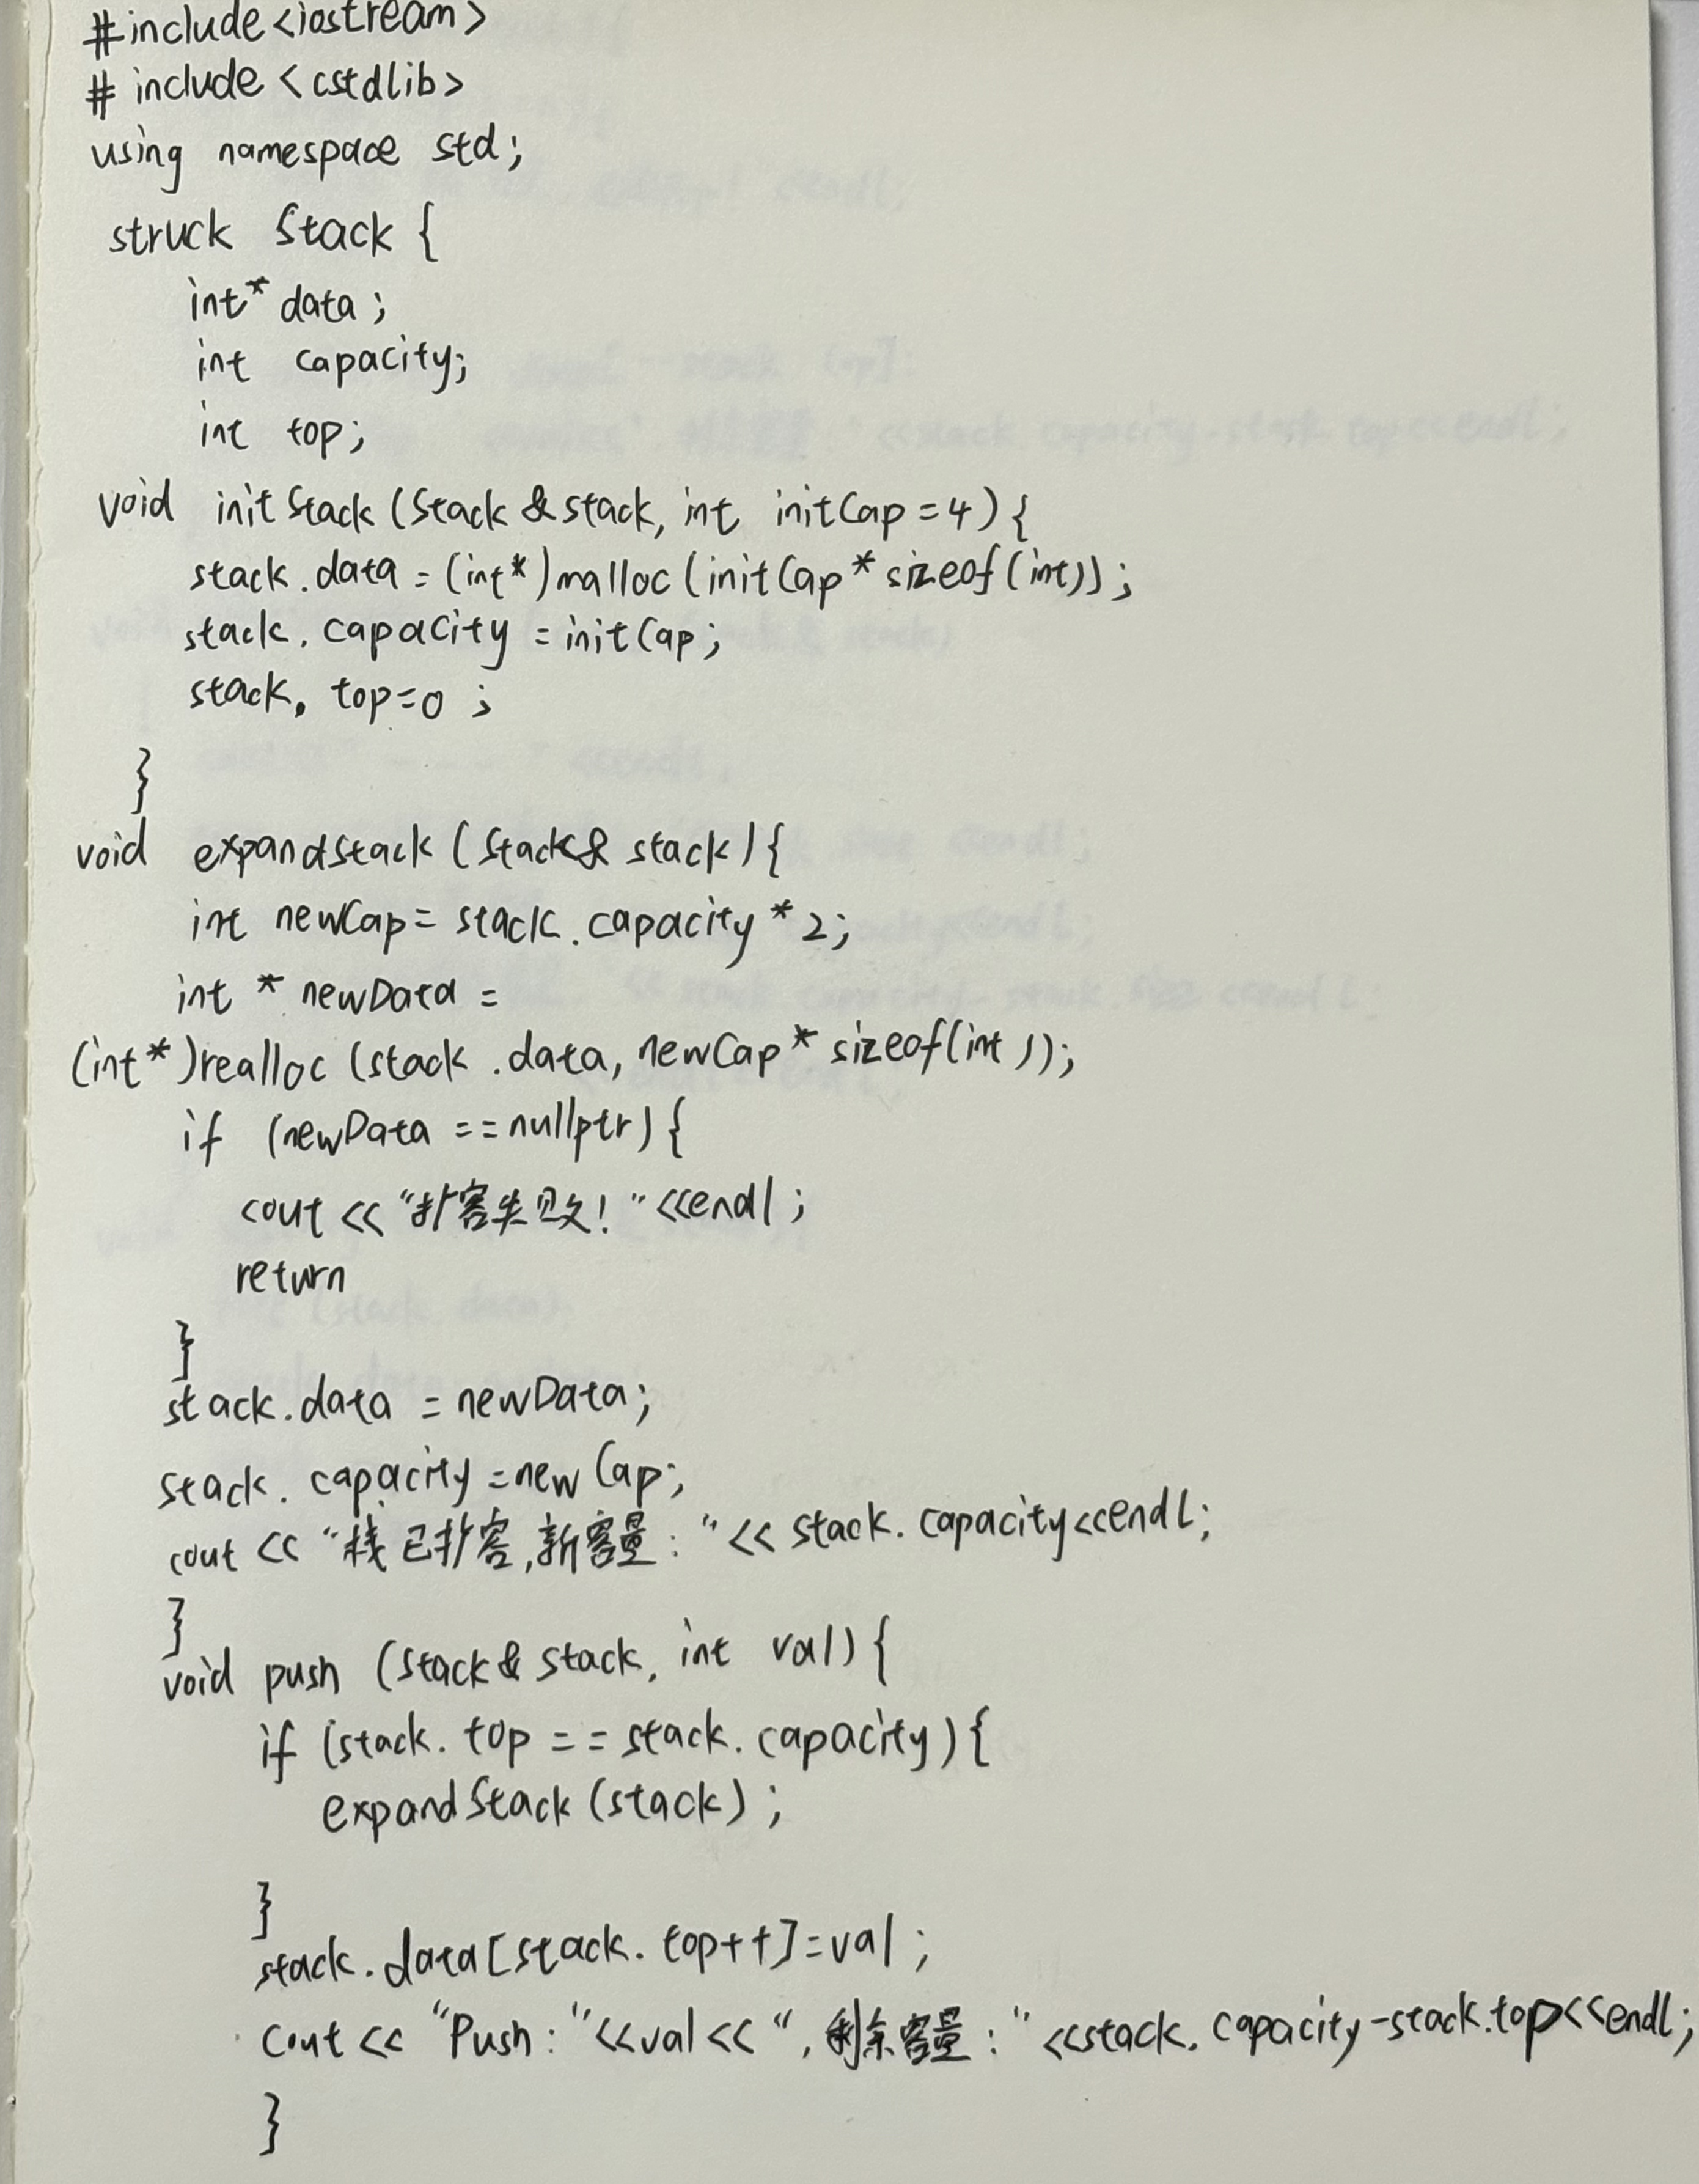 #include<iostream>
# include <cstdlib>
using namespace std;
struck Stack {
int* data;
int capacity;
int top;
void initStack (Stack & stack, int initCap = 4) {
stack.data = (int*)malloc (initCap * sizeof(int));
stack. capacity = initCap;
stack. top=0 ;
}
void expandstack (Stack& stack) {
int newCap= stack.capacity * 2;
int * newData =
(int*)realloc (stack .data, newCap * sizeof(int ));
if (newData ==nullptr) {
cout << "扩容失败! " <<endl ;
return
}
stack.data = newData;
stack. capacity =newCap;
cout << "栈已扩容,新容量: "<< stack. capacity<<endl;
}
void push (Stack& stack, int val) {
if (stack. top == stack. capacity) {
expandStack (stack) ;
}
stack.data[stack. top++]=val ;
Cout << "Push: "<<val << ", 剩余容量: " <<stack. capacity-stack.top<<endl;
}